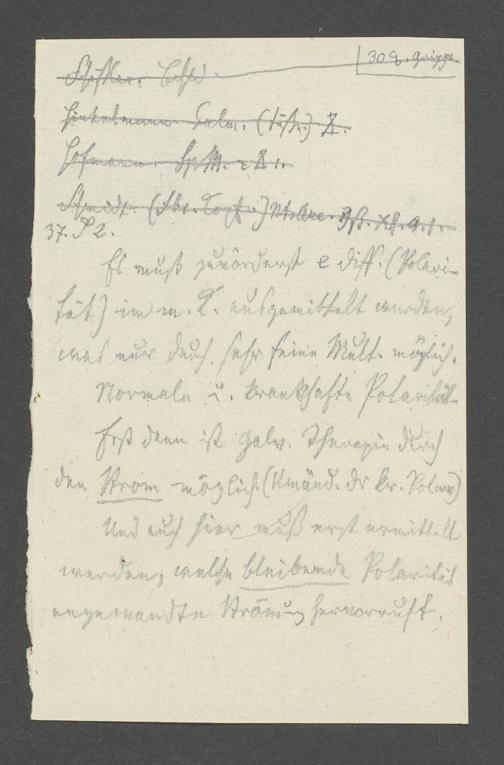 30 Q. Grippe.
Hinkelmann.
Hofmann.
Schmidt.
37. S 2.
Es muß zuvörderst e diff. (Polari-
tät) im m. K. ausgemittelt werden,
was nur durch sehr feine Mult. möglich.
Normale u. krankhafte Polarität.
Erst dann ist galv. Therapie durch
den Strom möglich. (Umänd. der kr. Polar.)
Und auch hier muß erst ermittelt
werden, welche bleibende Polarität
angewandte Strömung hervorruft.